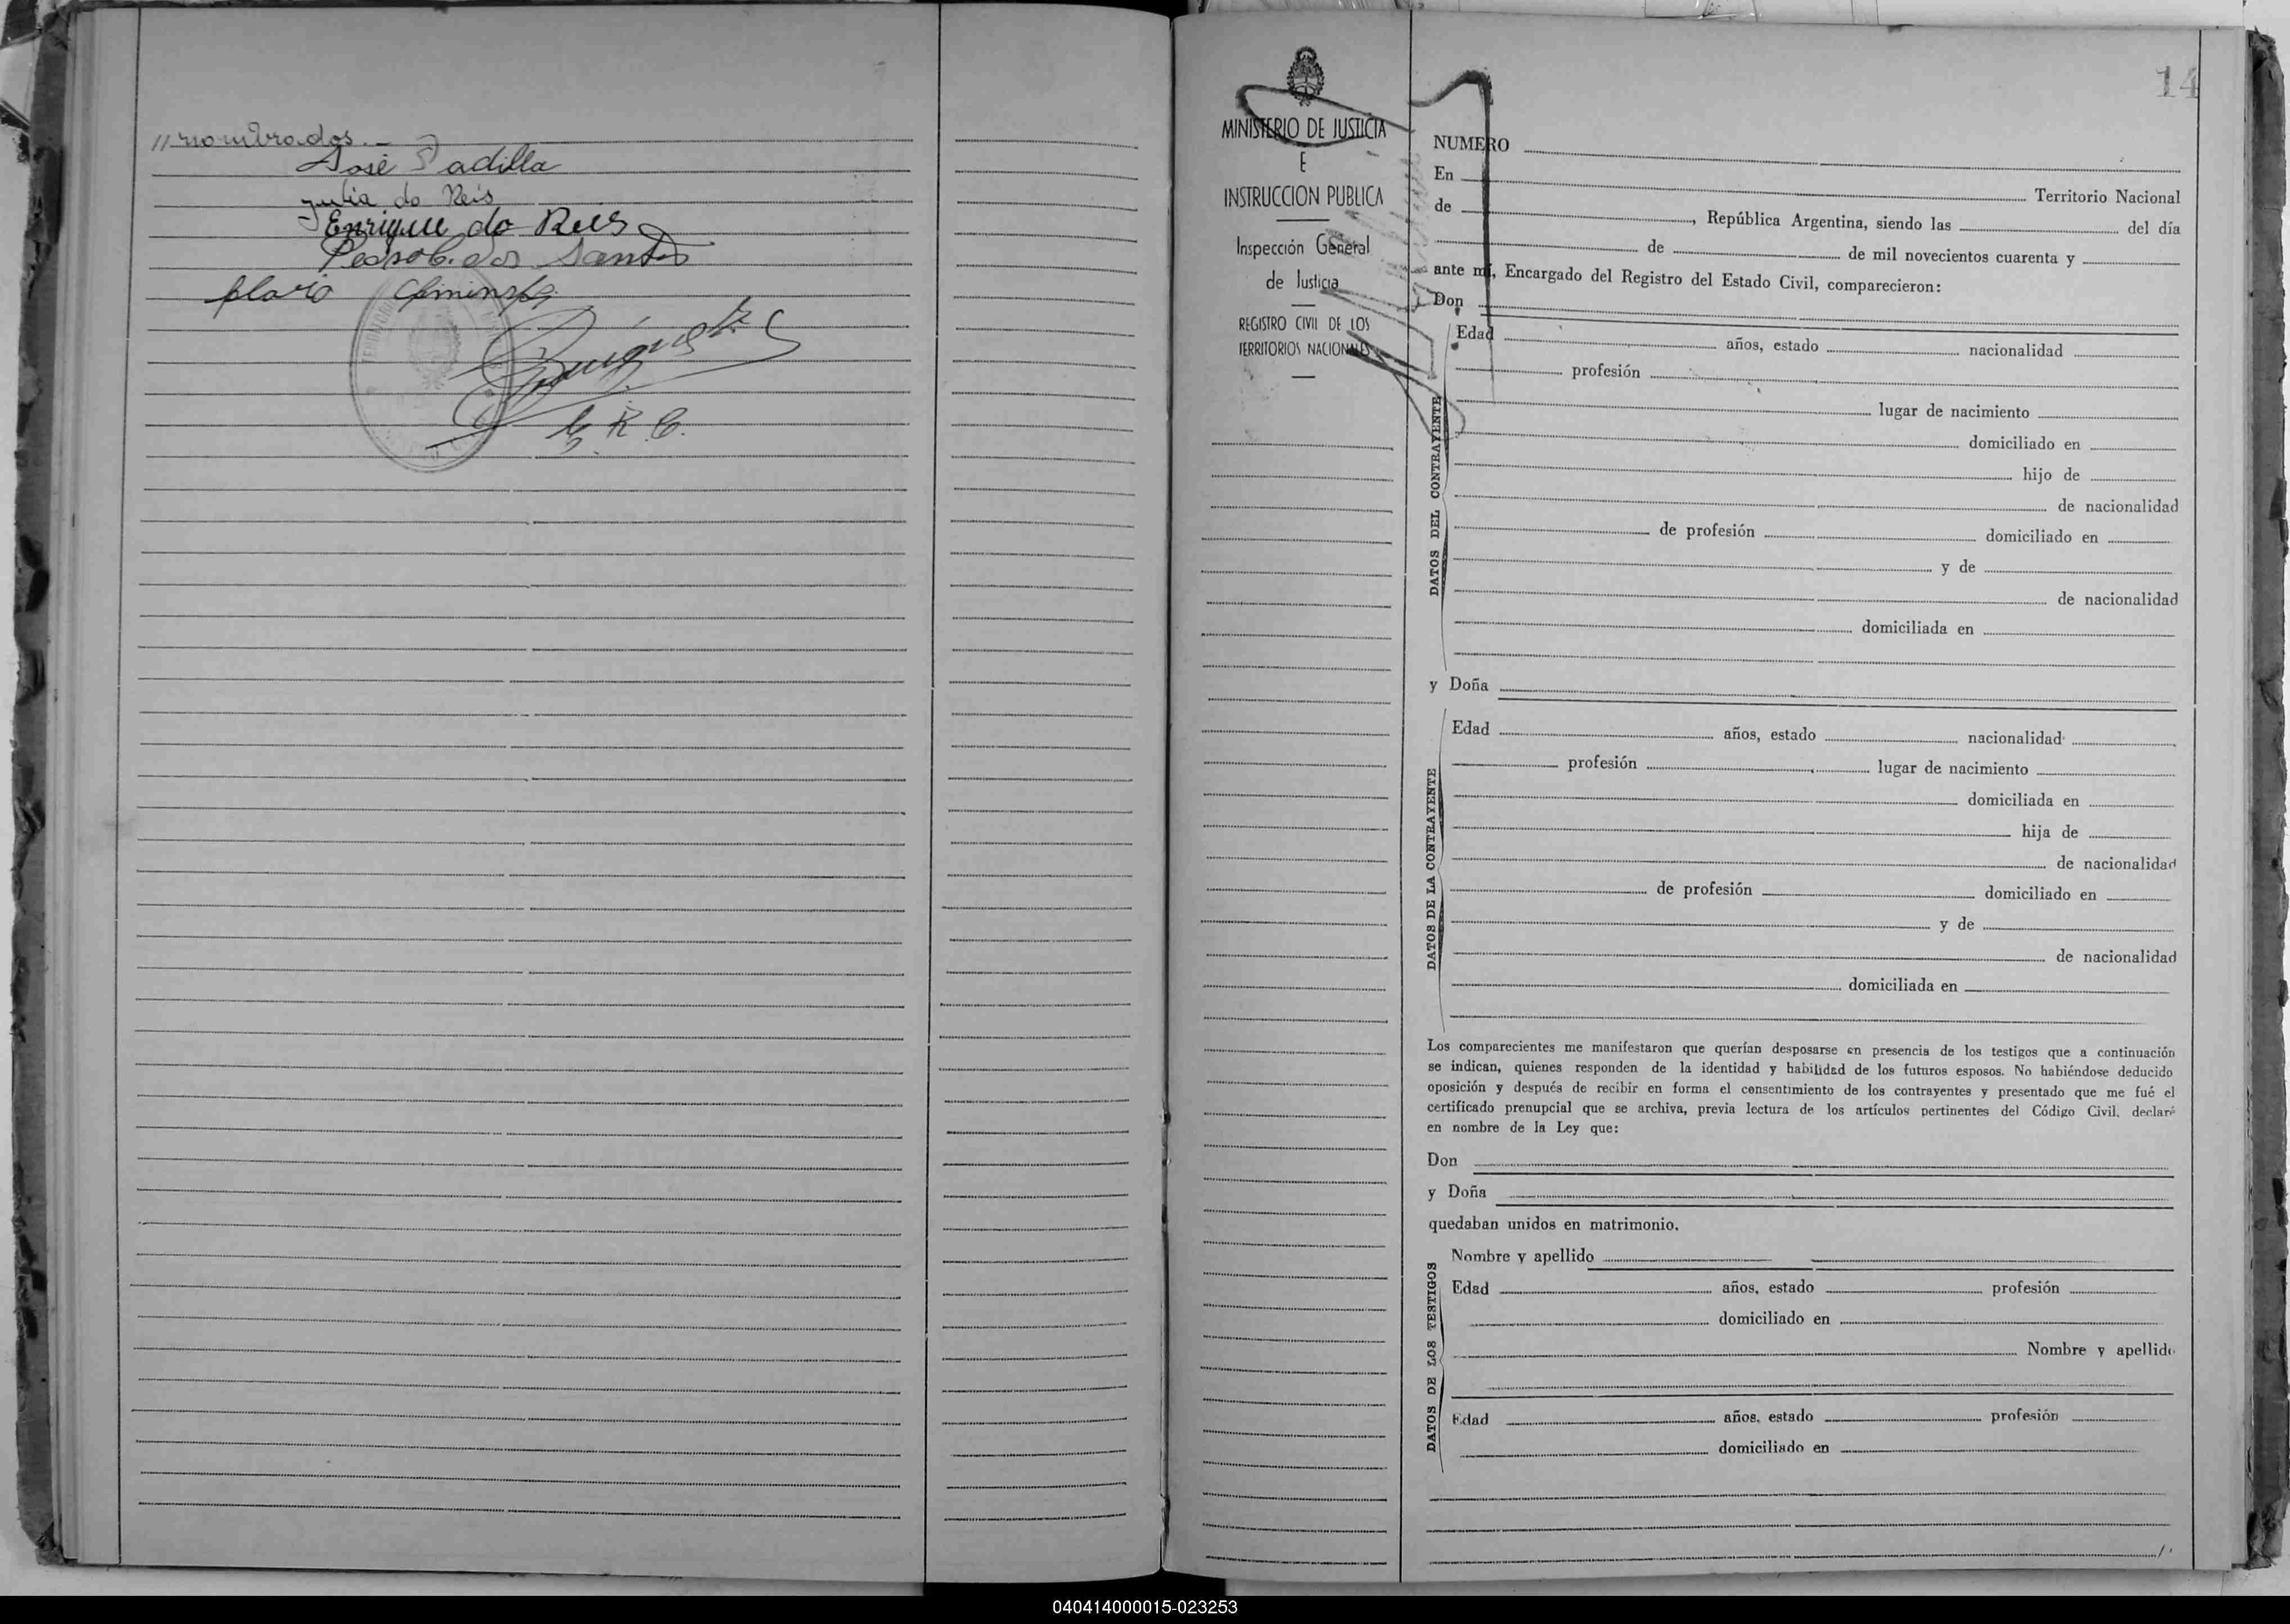 // nombrados.—
José Padilla
Julia do Reis
Enrique do Reis
Pedro C. dos Santos
E. R. C.
14
MINISTERIO DE JUSTICIA
E
INSTRUCCION PUBLICA
Inspección General
de Justicia
REGISTRO CIVIL DE LOS
TERRITORIOS NACIONALES
NUMERO
En Territorio Nacional
de , República Argentina, siendo las del día
de de mil novecientos cuarenta y
ante mí, Encargado del Registro del Estado Civil, comparecieron:
Don
DATOS DEL CONTRAYENTE
Edad años, estado nacionalidad
profesión
lugar de nacimiento
domiciliado en
hijo de
de nacionalidad
de profesión domiciliado en
y de
de nacionalidad
domiciliada en
y Doña
DATOS DE LA CONTRAYENTE
Edad años, estado nacionalidad
profesión lugar de nacimiento
domiciliada en
hija de
de nacionalidad
de profesión domiciliado en
y de
de nacionalidad
domiciliada en
Los comparecientes me manifestaron que querían desposarse en presencia de los testigos que a continuación
se indican, quienes responden de la identidad y habilidad de los futuros esposos. No habiéndose deducido
oposición y después de recibir en forma el consentimiento de los contrayentes y presentado que me fué el
certificado prenupcial que se archiva, previa lectura de los artículos pertinentes del Código Civil, declaré
en nombre de la Ley que:
Don
y Doña
quedaban unidos en matrimonio.
DATOS DE LOS TESTIGOS
Nombre y apellido
Edad años, estado profesión
domiciliado en
Nombre y apellido
Edad años, estado profesión
domiciliado en
//
040414000015-023253